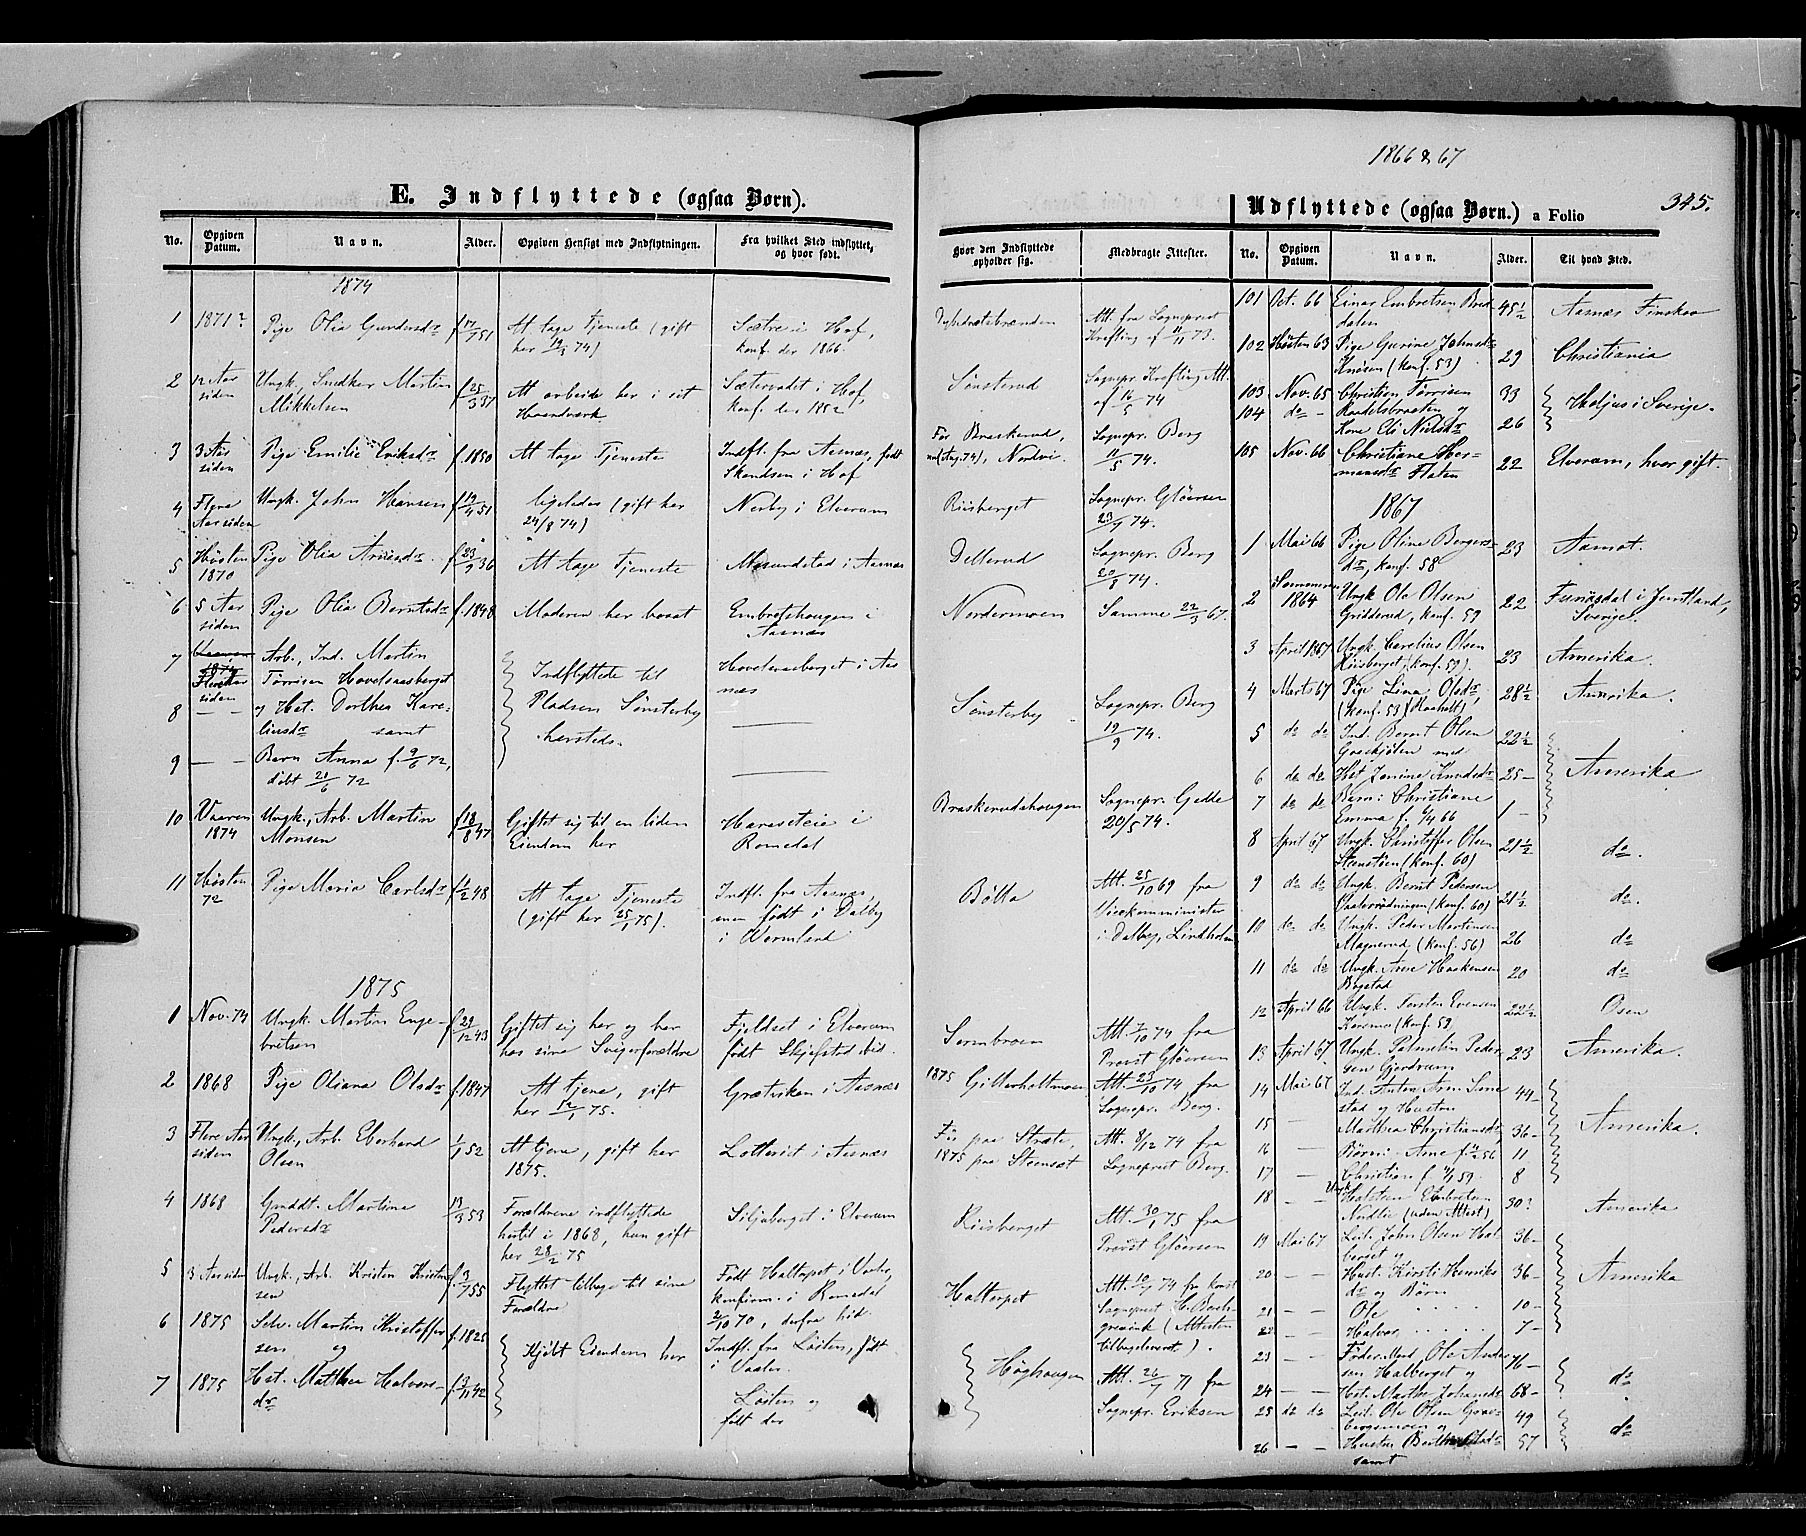 1866 & 67
E. Indflyttede (ogsaa Børn).
Udflyttede (ogsaa Børn.) a Folio 345.
No. Opgiven Datum. Navn. Alder. Opgiven Hensigt med Indflytningen. Fra hvilket Sted indflyttet, og hvor født. Hvor den Indflyttede opholder sig. Medbragte Attester.
1874
1 1871? Pige Olia Gundersdr f. 17/7 51 At tage Tjeneste (gift
her 19/3 74) Sætre i Hof,
konf. der 1866. Att. fra Sogneprest
Krefting af 11/11 73.
2 12 Aar
siden Ungk. Snedker Martin
Mikkelsen f. 25/3 37 At arbeide her i sit
Haandværk Sætervadet i Hof,
konf. der 1852 Sønsterud Sognepr. Krefting Att.
af 16/5 74
3 3 Aar
siden Pige Emilie Eriksdr f. 1850 At tage Tjeneste Indfl. fra Aasnæs, født
Skundsen i Hof Før Braskerud,
nu (Aug. 74), Nordvi Sognepr. Berg
11/5 74.
4 Flere
Aar siden Ungk. John Hansen f. 19/4 51 ligeledes (gift her
24/8 74) Nerby i Elverum Riisberget Sognepr. Gløersen
23/7 74.
5 Høsten
1870 Pige Olia Arnesdr f. 23/9 36 At tage Tjeneste Masundstad i Aasnæs Dellerud Sognepr. Berg
20/8 74.
6 5 Aar
siden Pige Olia Berntsdr f. 1848 Moderen her bosat Embretshaugen i
Aasnæs Nordermoen Samme 22/3 67.
7 Vaaren
1874
Flere Aar
siden Arb., Ind. Martin
Tørrisen Hovelsaasberget Indflyttede til
Pladsen Sønsterby
hersteds. Hovelsaasberget i Aas
næs Sønsterby Sognepr. Berg
19/9 74.
8 — — og Hst. Dorthea Kare-
liusdr samt
9 — — Barn Anna f. 9/6 72,
døbt 21/6 72
10 Vaaren
1874 Ungk., Arb. Martin
Monsen f. 18/8 47 Giftet sig til en liden
Eiendom her Haraseteie i
Romedal Braskerudshaugen Sognepr. Gjelle
20/5 74.
11 Høsten
72 Pige Maria Carlsdr f. 1/2 48 At tage Tjeneste
(gift her 25/1 75). Indfl. fra Aasnæs,
men født i Dalby
i Wermland Bølla Att. 25/10 69 fra
Vicekomminister
i Dalby, Lindholm
1875
1 Nov. 74 Ungk. Martin Enge-
bretsen f. 29/12 43 Giftet sig her og her
hos sine Svigerforældre Fjeldset i Elverum
født Skjefsted ibid. Sormbroen Att. 7/10 74 fra
Provst Gløersen
2 1868 Pige Oliana Olsdr f. 1847 At tjene, gift
her 12/1 75. Grætviken i Aasnæs 1875 Gitterholtmoen Att. 23/10 74 fra
Sognepr. Berg.
3 Flere Aar
siden Ungk., Arb. Eberhard
Olsen 1/1 52 At tjene, gift her
1875. Lotterist i Aasnæs Før paa Stræte,
1875 paa Steensæt Att. 8/12 74 fra
Sogneprest Berg.
4 1868 Gmddt. Martina
Pedersdr 13/3 53 Forældrene indflyttede
hertil i 1868, hun gift
her 28/2 75 Siljuberget i Elverum Riisberget Att. 30/1 75 fra
Provst Gløersen
5 3 Aar siden Ungk., Arb. Kristen Kristen
sen f. 3/7 55 Flyttet tilbage til sine
Forældre Født Haltorpet i Vaaler,
konfirm. i Romedal
2/10 70, derfra hid. Haltorpet Att. 10/7 74 fra
Sogneprest H. Borch-
grevink (Attesten
tilbageleveret).
6 1875 Selv. Martin Kristoffer
sen og f. 1825 Kjøbt Eiendom her Indfl. fra Løiten, født
i Vaaler. Høghaugen Att. 26/7 71 fra
Sognepr. Eriksen
7 1875 Hst. Mathea Halvors-
dr f. 3/11 42 Løiten og
født der
No. Opgiven Datum. Navn. Alder. Til hvad Sted.
101 Oct. 66 Einar Embretsen Bred
dalen 45½ Aasnæs Finskov
102 Høsten 63 Pige Gurine Johnsdr
Knösen (konf. 53) 29 Christiania
103 Nov. 65 Christian Tørrisen 33
104 do - Raadelsbraaten og
Kone Oli Nielsdr 26 i Sverige.
105 Nov. 66 Christiane Her-
mansdr Flaten 22 Elverum, hvor gift.
1867
1 Mai 66 Pige Oline Bergers-
dr, konf. 58 23 Aamot.
2 Sommeren
1864 Ungk Ole Olsen
Gridderud, konf. 59 22 Funäsdal i Jemtland,
Sverige.
3 April 1867 Ungk. Carelius Olsen
Riisberget (konf. 59). 23 Amerika.
4 Marts 67 Pige Lina Olsdr,
(konf. 53) 28½ Amerika.
5 do do Ind. Bernt Olsen
Gaaskjølen med 22½ Amerika
6 do do Hst Jonine Knudsdr 25 -
7 do do Barn: Christiane
Emma f. 4/4 66 1 -
8 April 67 Ungk. Christoffer Olsen
Steensöen (konf. 60) 21½ do.
9 do do Ungk. Bernt Pedersen
(konf. 60) 21½ do.
10 do do Ungk. Peder Martinsen
Magnerud (konf. 56) 26 do
11 do do Ungk. Arne Haakensen
Bogstad 20 do
12 April 66 Ungk. Torsten Evensen
(konf. 59) 22½ Osen
13 April 67 Ungk. Palmelin Peder
sen Gjerdrum 23 Amerika.
14 Mai 67 Ind. Anton Arn. Sone
stad og Hustru 44 -
15 — Mathea Christiansdr 36 - Amerika.
16 — Børn: Arne f. 56 11
17 — Christian f. 59. 8
18 — - Ungk. Halsten Embretsen
Nordlie (uden Attest) 30? Amerika
19 Mai 67 Leil. John Olsen Hal
berget og 36 -
20 — - Hust. Kirsti Henriks
dr og Børn 36 - Amerika
21 — - Ole . . . . 10 -
22 — - Halvor . . . . 7 -
23 — - Føder. Mand Ole Ander
sen Halberget og 76 - do
24 — - Hst. Marthe Johansdr 68 -
25 do do Leil. Ole Olsen Graa-
bergsmoen og 49 do
26 — - Hustru Olsdr
samt 57